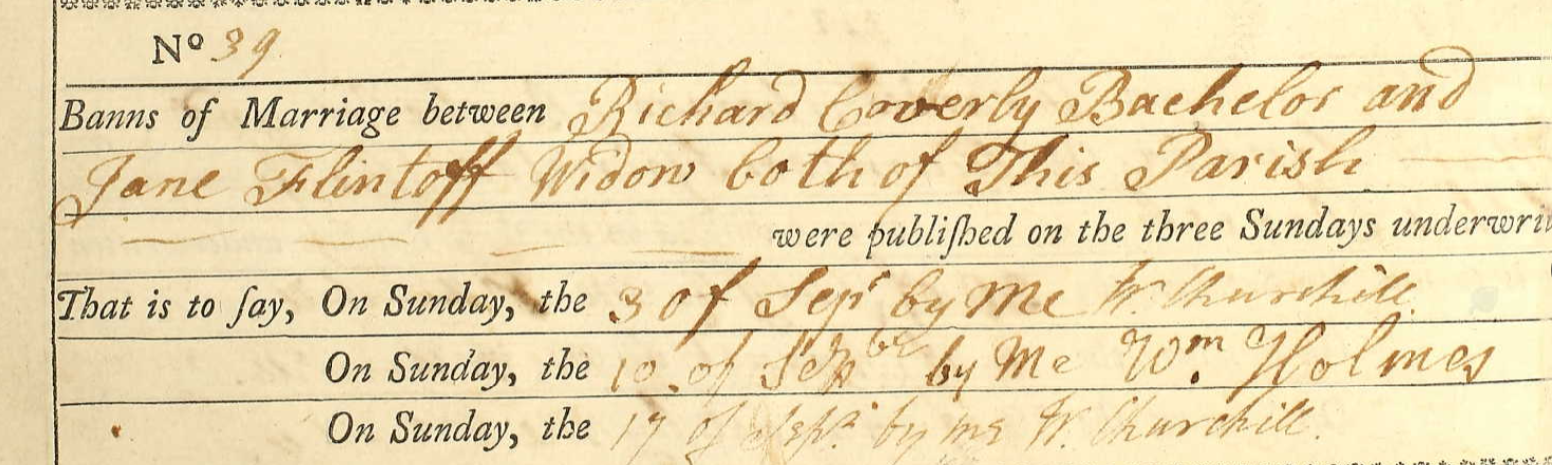 Nº 39
Banns of Marriage between Richard Coverly Bachelor and
Jane Flintoff Widow both of This Parish
were publiſhed on the three Sundays underwrit
That is to ſay, On Sunday, the 3 of Sepr by Me W. Churchill
On Sunday, the 10 of Sepbr by Me Wm Holmes
On Sunday, the 17 of Sepr by me W. Churchill.